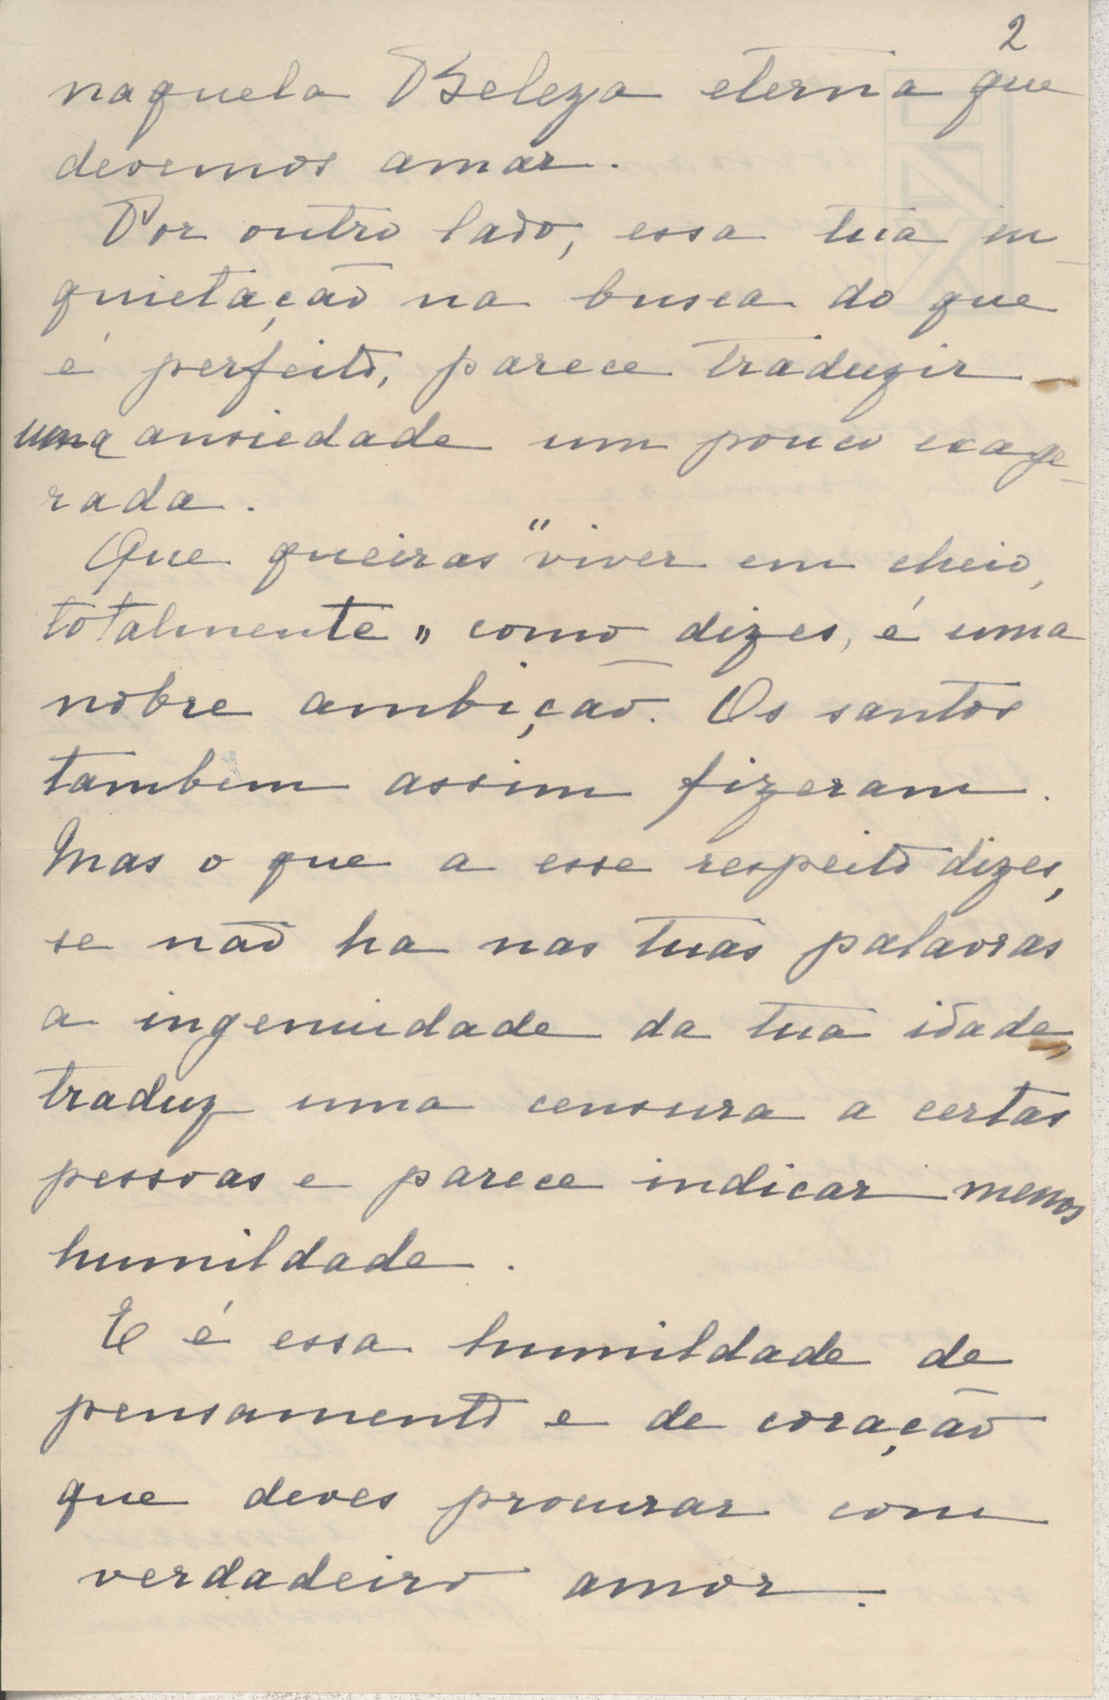 2
naquela Beleza eterna que
devemos amar.
Por outro lado, essa tua in-
quietação na busca do que
é perfeito, parece traduzir
uma ansiedade um pouco exage-
rada.
Que queiras "viver em cheio,
totalmente" como dizes, é uma
nobre ambição. Os santos
tambem assim fizeram.
Mas o que a esse respeito dizes,
se não ha nas tuas palavras
a ingenuidade da tua idade,
traduz uma censura a certas
pessoas e parece indicar menos
humildade.
E é essa humildade de
pensamento e de coração
que deves procurar com
verdadeiro amor.